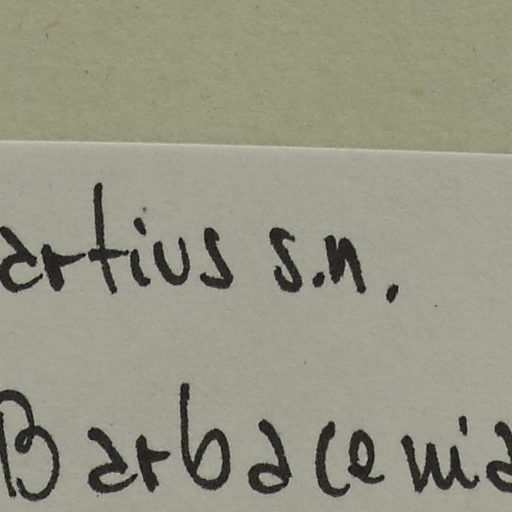 artius s.n.
Barbacenia